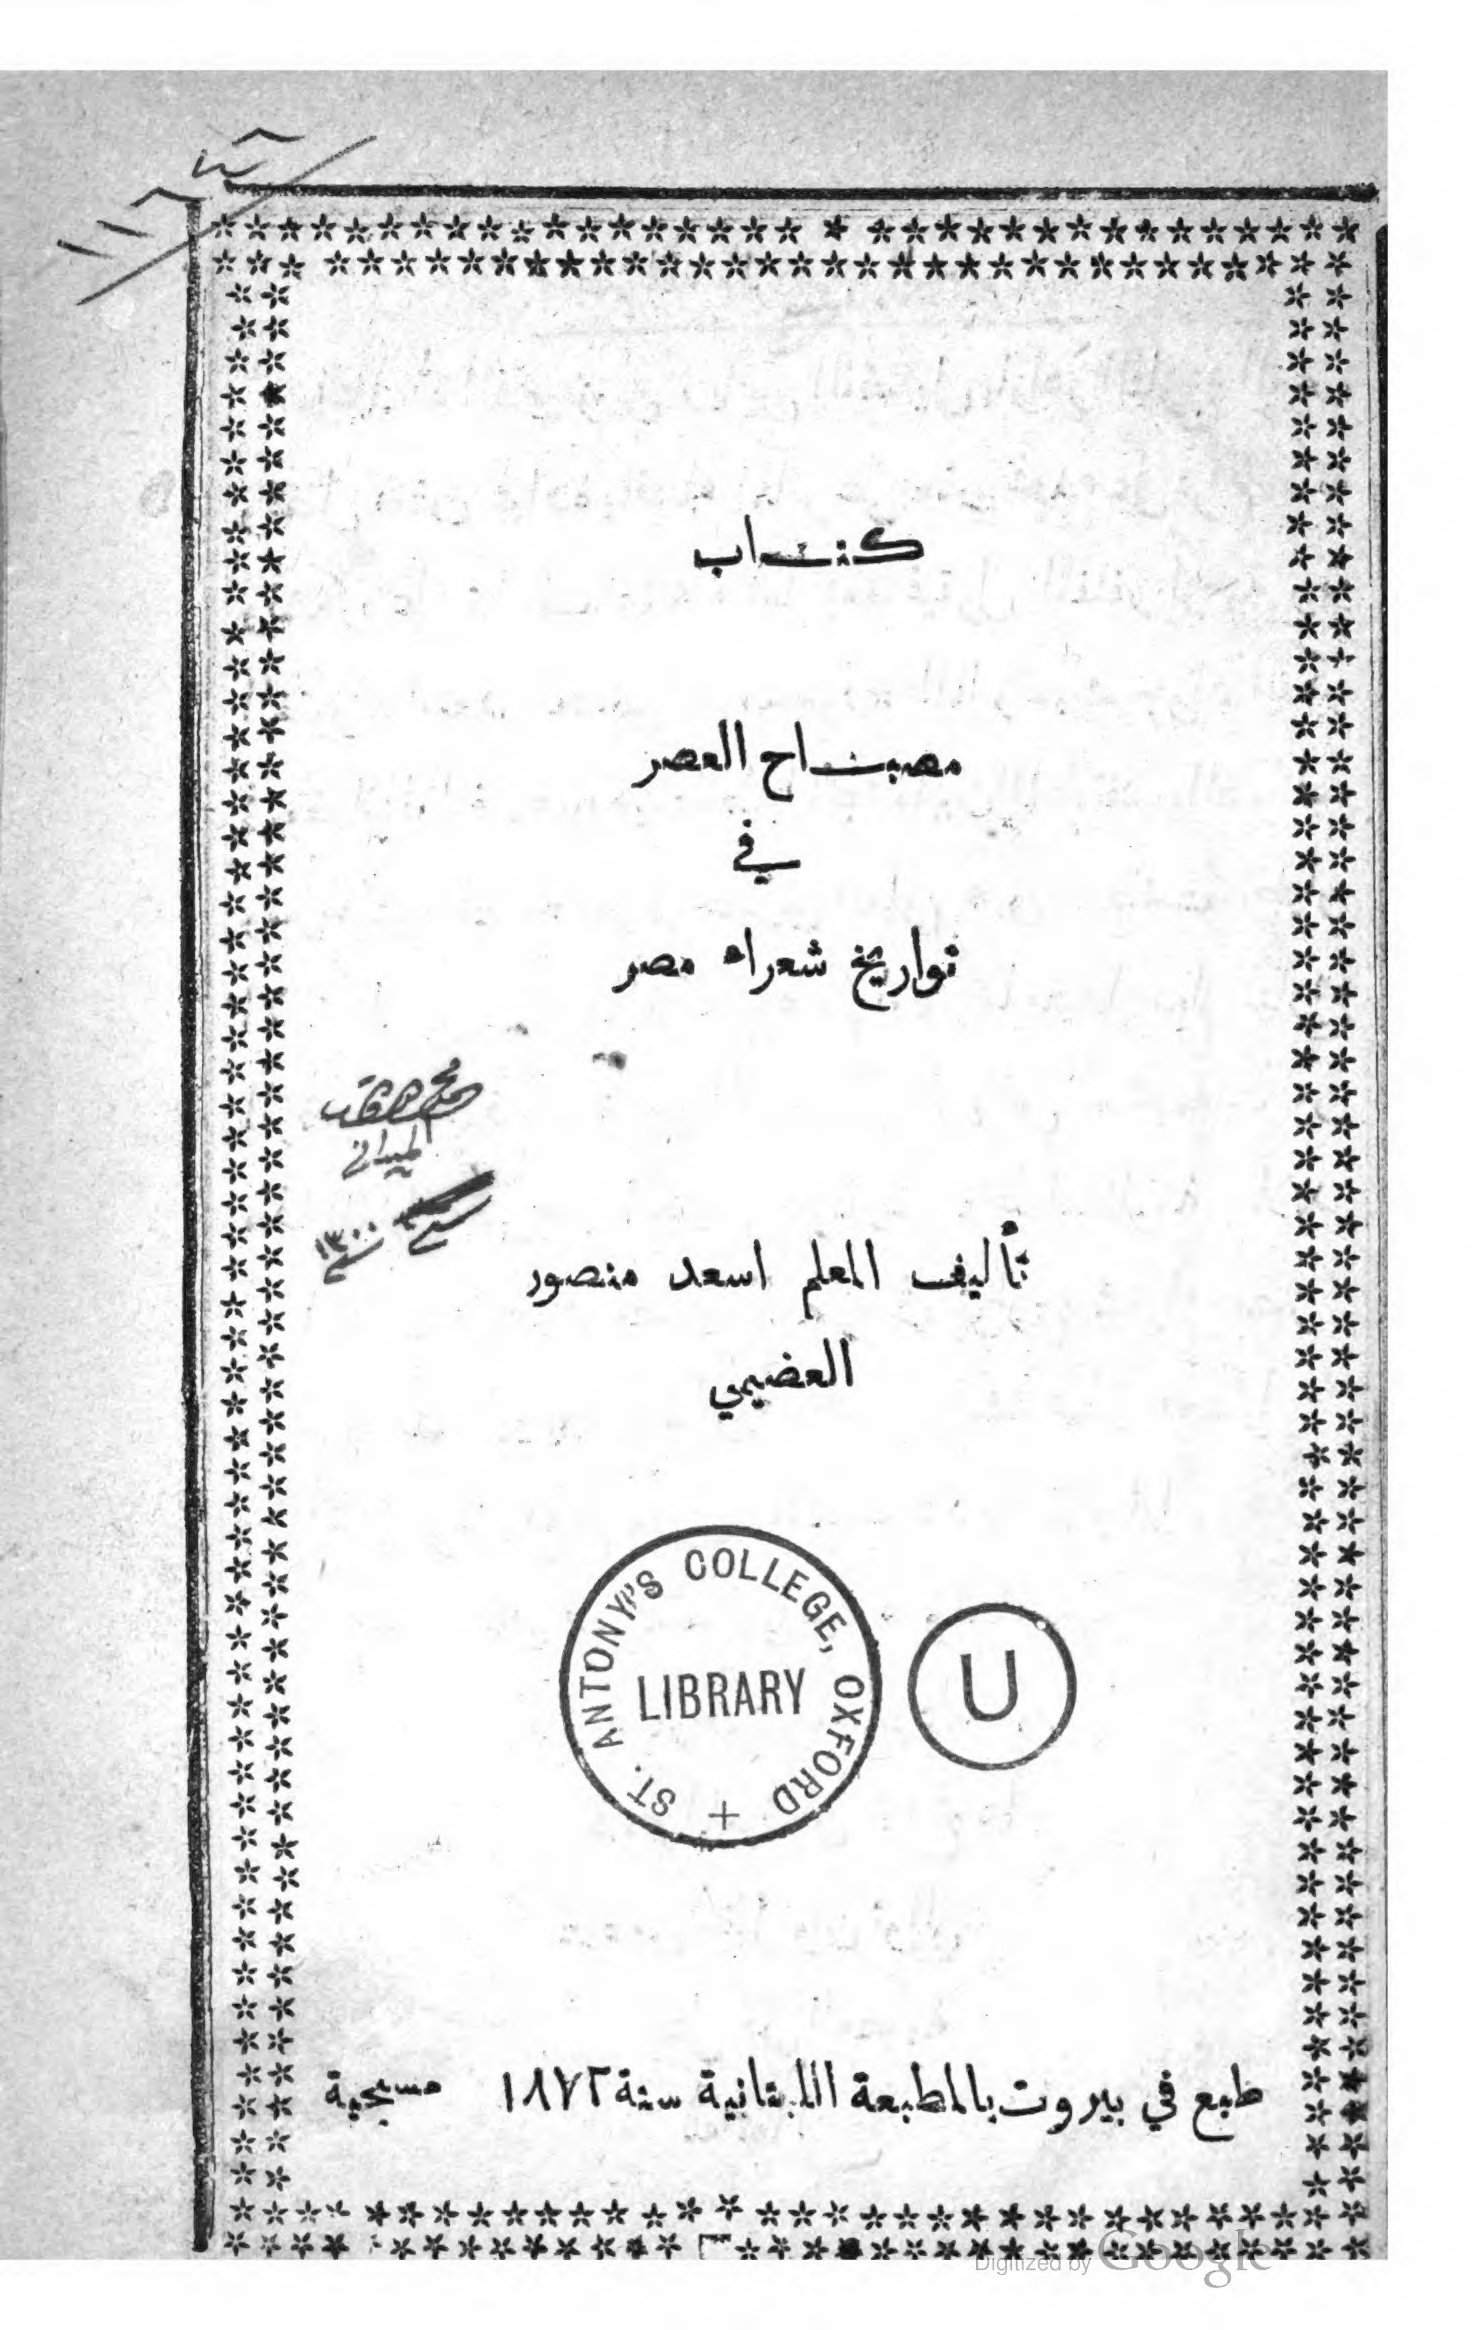 كتاب
مصباح العصر
في
تواريخ شعراء مصر
سنة ١٣٠٠
تأليف المعلم اسعد منصور
العضيمي
ST. ANTONY'S COLLEGE, OXFORD
LIBRARY
U
طبع في بيروت بالمطبعة اللبنانية سنة ١٨٧٢ مسيحية
Digitized by Google